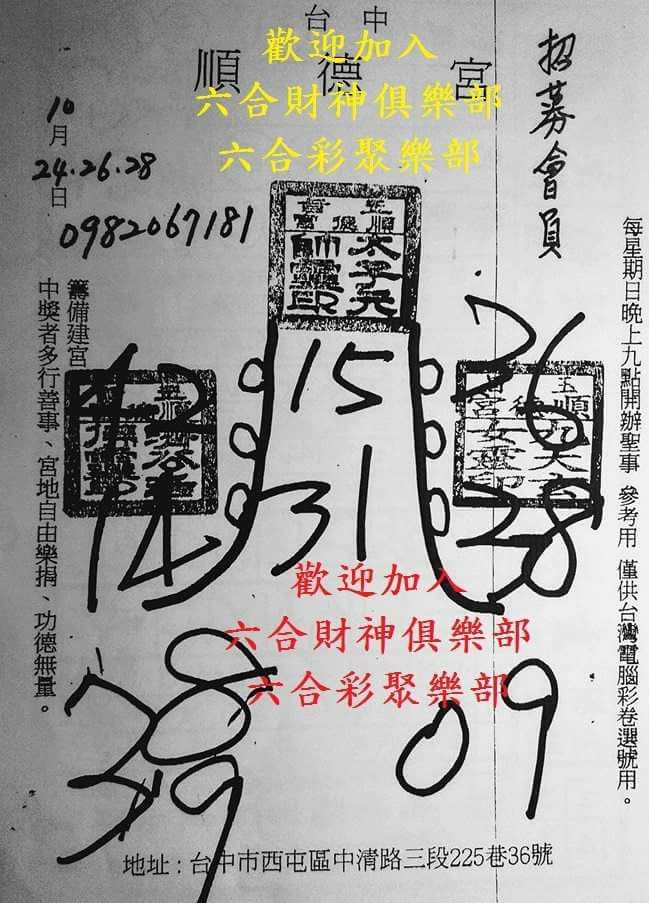 台中
順德宮
歡迎加入
六合財神俱樂部
六合彩聚樂部
招募會員
每星期日晚上九點開辦聖事 參考用 僅供台灣電腦彩卷選號用。
10月
24.26.28日
0982067181
太子元帥靈印
15
31
42
14
36
28
38
39
09
歡迎加入
六合財神俱樂部
六合彩聚樂部
籌備建宮
中獎者多行善事、宮地自由樂捐、功德無量。
地址：台中市西屯區中清路三段225巷36號